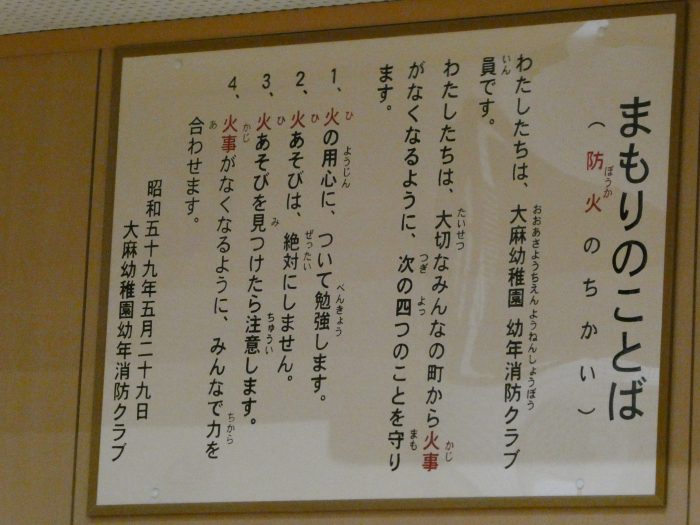 まもりのことば
（防火のちかい）
わたしたちは、大麻幼稚園 幼年消防クラブ
員です。
わたしたちは、大切なみんなの町から火事
がなくなるように、次の四つのことを守り
ます。
1、火の用心に、ついて勉強します。
2、火あそびは、絶対にしません。
3、火あそびを見つけたら注意します。
4、火事がなくなるように、みんなで力を
合わせます。
昭和五十九年五月二十九日
大麻幼稚園幼年消防クラブ